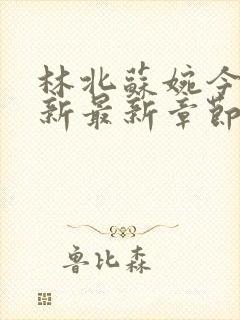 林北蘇婉今
新最新章節
魯比森